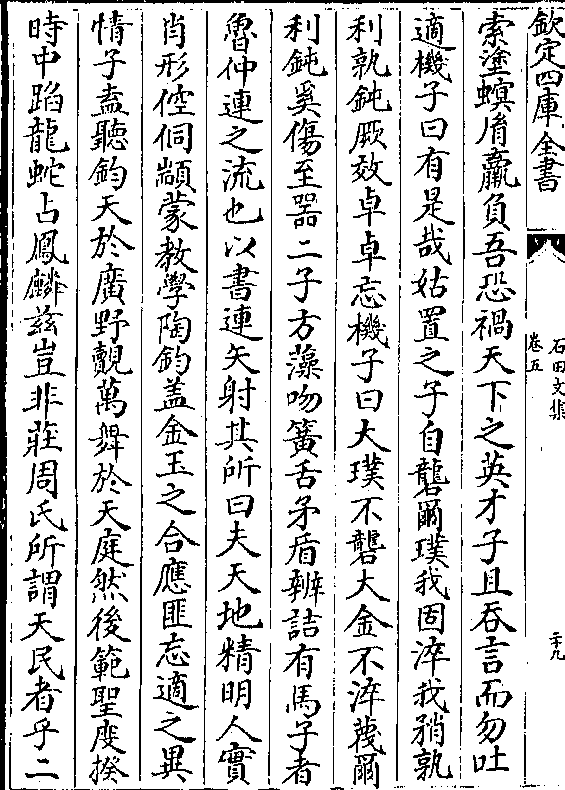 欽定四庫全書
石田文集
卷五
二十九
索塗螟㑗臝負吾恐禍天下之英才子且吞言而勿吐
適機子曰有是哉姑置之子自礱爾璞我固淬我矟孰
利孰鈍厥效卓卓忘機子曰大璞不礱大金不淬蔑爾
利鈍奚傷至器二子方藻吻簧舌矛盾辨詰有馬子者
魯仲連之流也以書連矢射其所曰夫天地精明人實
肖形倥侗顓蒙教學陶鈞盖金玉之合應匪忘適之異
情子盍聽鈞天於廣野覿萬舞於天庭然後範聖度揆
時中蹈龍蛇占鳳麟兹豈非莊周氏所謂天民者乎二